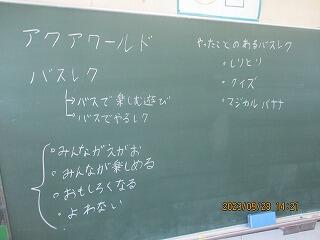 アクアワールド
バスレク
→バスで楽しむ遊び
→バスでやるレク
・みんながえがお
・みんなが楽しめる
・おもしろくなる
・よわない
・
やったことのあるバスレク
・しりとり
・クイズ
・マジカルバナナ
2023/09/29 14:21